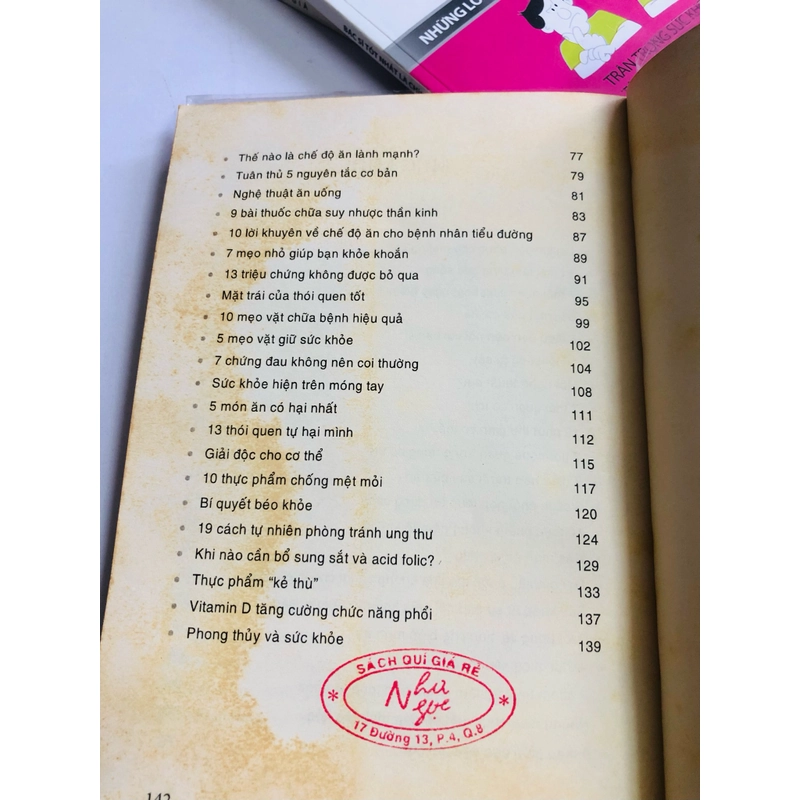 BÁC SĨ TỐT NHẤT LÀ CH
NHỮNG L
TRÂN TRỌNG SỨC KH
Thế nào là chế độ ăn lành mạnh? 77
Tuân thủ 5 nguyên tắc cơ bản 79
Nghệ thuật ăn uống 81
9 bài thuốc chữa suy nhược thần kinh 83
10 lời khuyên về chế độ ăn cho bệnh nhân tiểu đường 87
7 mẹo nhỏ giúp bạn khỏe khoắn 89
13 triệu chứng không được bỏ qua 91
Mặt trái của thói quen tốt 95
10 mẹo vặt chữa bệnh hiệu quả 99
5 mẹo vặt giữ sức khỏe 102
7 chứng đau không nên coi thường 104
Sức khỏe hiện trên móng tay 108
5 món ăn có hại nhất 111
13 thói quen tự hại mình 112
Giải độc cho cơ thể 115
10 thực phẩm chống mệt mỏi 117
Bí quyết béo khỏe 120
19 cách tự nhiên phòng tránh ung thư 124
Khi nào cần bổ sung sắt và acid folic? 129
Thực phẩm "kẻ thù" 133
Vitamin D tăng cường chức năng phổi 137
Phong thủy và sức khỏe 139
SÁCH QUÍ GIÁ RẺ
Như
Ngọc
17 Đường 13, P.4, Q.8
142